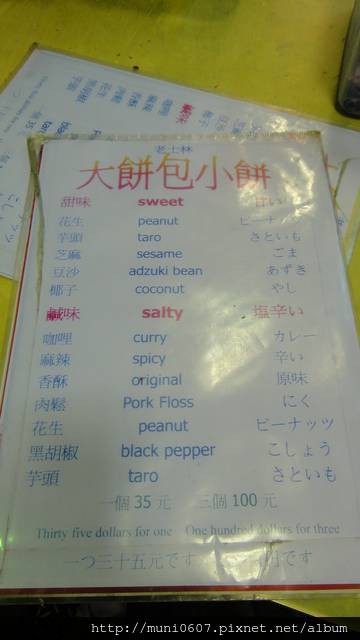 老士林
大餅包小餅
甜味 sweet 甘い
花生 peanut ピーナッツ
芋頭 taro さといも
芝麻 sesame ごま
豆沙 adzuki bean あずき
椰子 coconut やし
鹹味 salty 塩辛い
咖哩 curry カレー
麻辣 spicy 辛い
香酥 original 原味
肉鬆 Pork Floss にく
花生 peanut ピーナッツ
黑胡椒 black pepper こしょう
芋頭 taro さといも
一個 35 元 三個 100 元
Thirty five dollars for one One hundred dollars for three
一つ三十五元です です
http://muni0607.pixnet.net/album